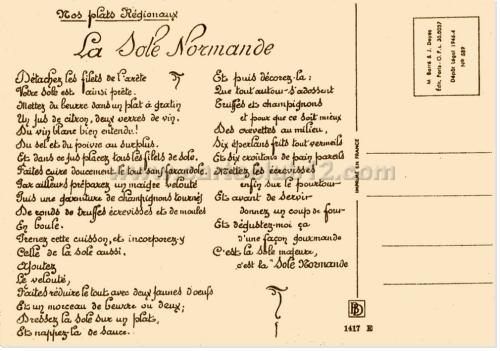 Nos plats Régionaux
La Sole Normande
Détachez les filets de l'arête
Votre sole est ainsi prête.
Mettez du beurre dans un plat à gratin
Un jus de citron, deux verres de vin.
Du vin blanc bien entendu!
Du sel et du poivre au surplus.
Et dans ce jus placez tous les filets de sole.
Faites cuire doucement le tout sans farandole
Par ailleurs préparez un maigre velouté
Puis une garniture de champignons tournés
De ronds de truffes écrevisses et de moules
En boule.
Prenez cette cuisson, et incorporez-y
Celle de la sole aussi.
Ajoutez
Le velouté,
Faites réduire le tout avec deux jaunes d'oeufs
Et un morceau de beurre ou deux;
Dressez la sole sur un plat,
Et nappez-la de sauce.
Et puis décorez-la:
Que tout autour s'adossent
Truffes et champignons
et pour que ce soit mieux
Des crevettes au milieu,
Six éperlans frits tout vermeils
Et six croûtons de pain pareils
Mettez les écrevisses
enfin sur le pourtour
Et avant de servir
donnez un coup de four
Et dégustez-moi ça
d'une façon gourmande
C'est la sole majeure,
c'est la "Sole Normande
M. Barré & J. Dayez
Éd., Paris-O.P.L. 30.5037
Dépôt Légal 1946-4
N° 589
IMPRIMÉ EN FRANCE
BD
1417 E